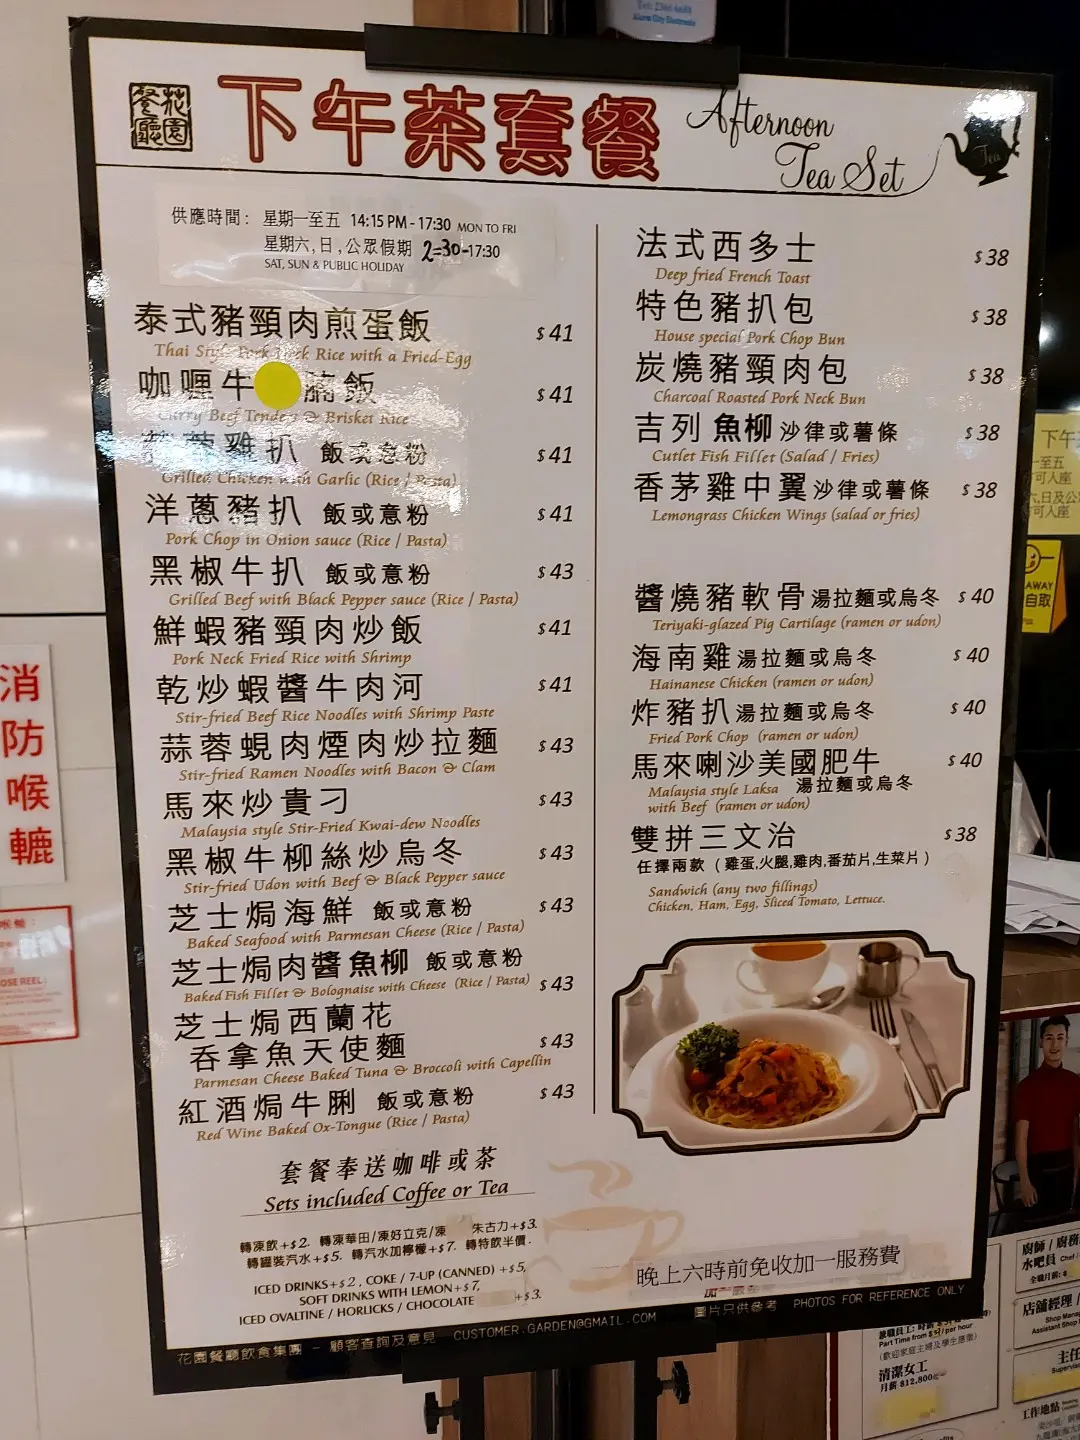 花園餐廳
下午茶套餐
Afternoon
Tea Set
Tea
供應時間: 星期一至五 14:15 PM - 17:30 MON TO FRI
星期六,日,公眾假期 2=30-17:30
SAT, SUN & PUBLIC HOLIDAY
泰式豬頸肉煎蛋飯 $41
Thai Style Pork Neck Rice with a Fried-Egg
咖喱牛 腩飯 $41
Curry Beef & Brisket Rice
雞扒 飯或意粉 $41
Grilled Chicken with Garlic (Rice / Pasta)
洋蔥豬扒 飯或意粉 $41
Pork Chop in Onion sauce (Rice / Pasta)
黑椒牛扒 飯或意粉 $43
Grilled Beef with Black Pepper sauce (Rice / Pasta)
鮮蝦豬頸肉炒飯 $41
Pork Neck Fried Rice with Shrimp
乾炒蝦醬牛肉河 $41
Stir-fried Beef Rice Noodles with Shrimp Paste
蒜蓉蜆肉煙肉炒拉麵 $43
Stir-fried Ramen Noodles with Bacon & Clam
馬來炒貴刁 $43
Malaysia style Stir-Fried Kwai-dew Noodles
黑椒牛柳絲炒烏冬 $43
Stir-fried Udon with Beef & Black Pepper sauce
芝士焗海鮮 飯或意粉 $43
Baked Seafood with Parmesan Cheese (Rice / Pasta)
芝士焗肉醬魚柳 飯或意粉
Baked Fish Fillet & Bolognaise with Cheese (Rice / Pasta) $43
芝士焗西蘭花
吞拿魚天使麵 $43
Parmesan Cheese Baked Tuna & Broccoli with Capellin
紅酒焗牛脷 飯或意粉 $43
Red Wine Baked Ox-Tongue (Rice / Pasta)
套餐奉送咖啡或茶
Sets included Coffee or Tea
轉凍飲+$2. 轉凍華田/凍好立克/凍 朱古力+$3.
轉罐裝汽水+$5. 轉汽水加檸檬+$7. 轉特飲半價.
ICED DRINKS+$2, COKE / 7-UP (CANNED) +$5,
SOFT DRINKS WITH LEMON+$7,
ICED OVALTINE / HORLICKS / CHOCOLATE +$3.
法式西多士 $38
Deep fried French Toast
特色豬扒包 $38
House special Pork Chop Bun
炭燒豬頸肉包 $38
Charcoal Roasted Pork Neck Bun
吉列魚柳 沙律或薯條 $38
Cutlet Fish Fillet (Salad / Fries)
香茅雞中翼 沙律或薯條 $38
Lemongrass Chicken Wings (salad or fries)
醬燒豬軟骨 湯拉麵或烏冬 $40
Teriyaki-glazed Pig Cartilage (ramen or udon)
海南雞 湯拉麵或烏冬 $40
Hainanese Chicken (ramen or udon)
炸豬扒 湯拉麵或烏冬 $40
Fried Pork Chop (ramen or udon)
馬來喇沙美國肥牛 $40
湯拉麵或烏冬
Malaysia style Laksa
with Beef (ramen or udon)
雙拼三文治 $38
任擇兩款 (雞蛋,火腿,雞肉,番茄片,生菜片)
Sandwich (any two fillings)
Chicken, Ham, Egg, Sliced Tomato, Lettuce.
晚上六時前免收加一服務費
花園餐廳飲食集團 - 顧客查詢及意見 CUSTOMER.GARDEN@GMAIL.COM
圖片只供參考 PHOTOS FOR REFERENCE ONLY
消
防
喉
轆
AWAY
自取
廚師 / 廚務
水吧員
店舖經理 /
主任
工作地點
(歡迎家庭主婦及學生應徵)
清潔女工
月薪 $12,800